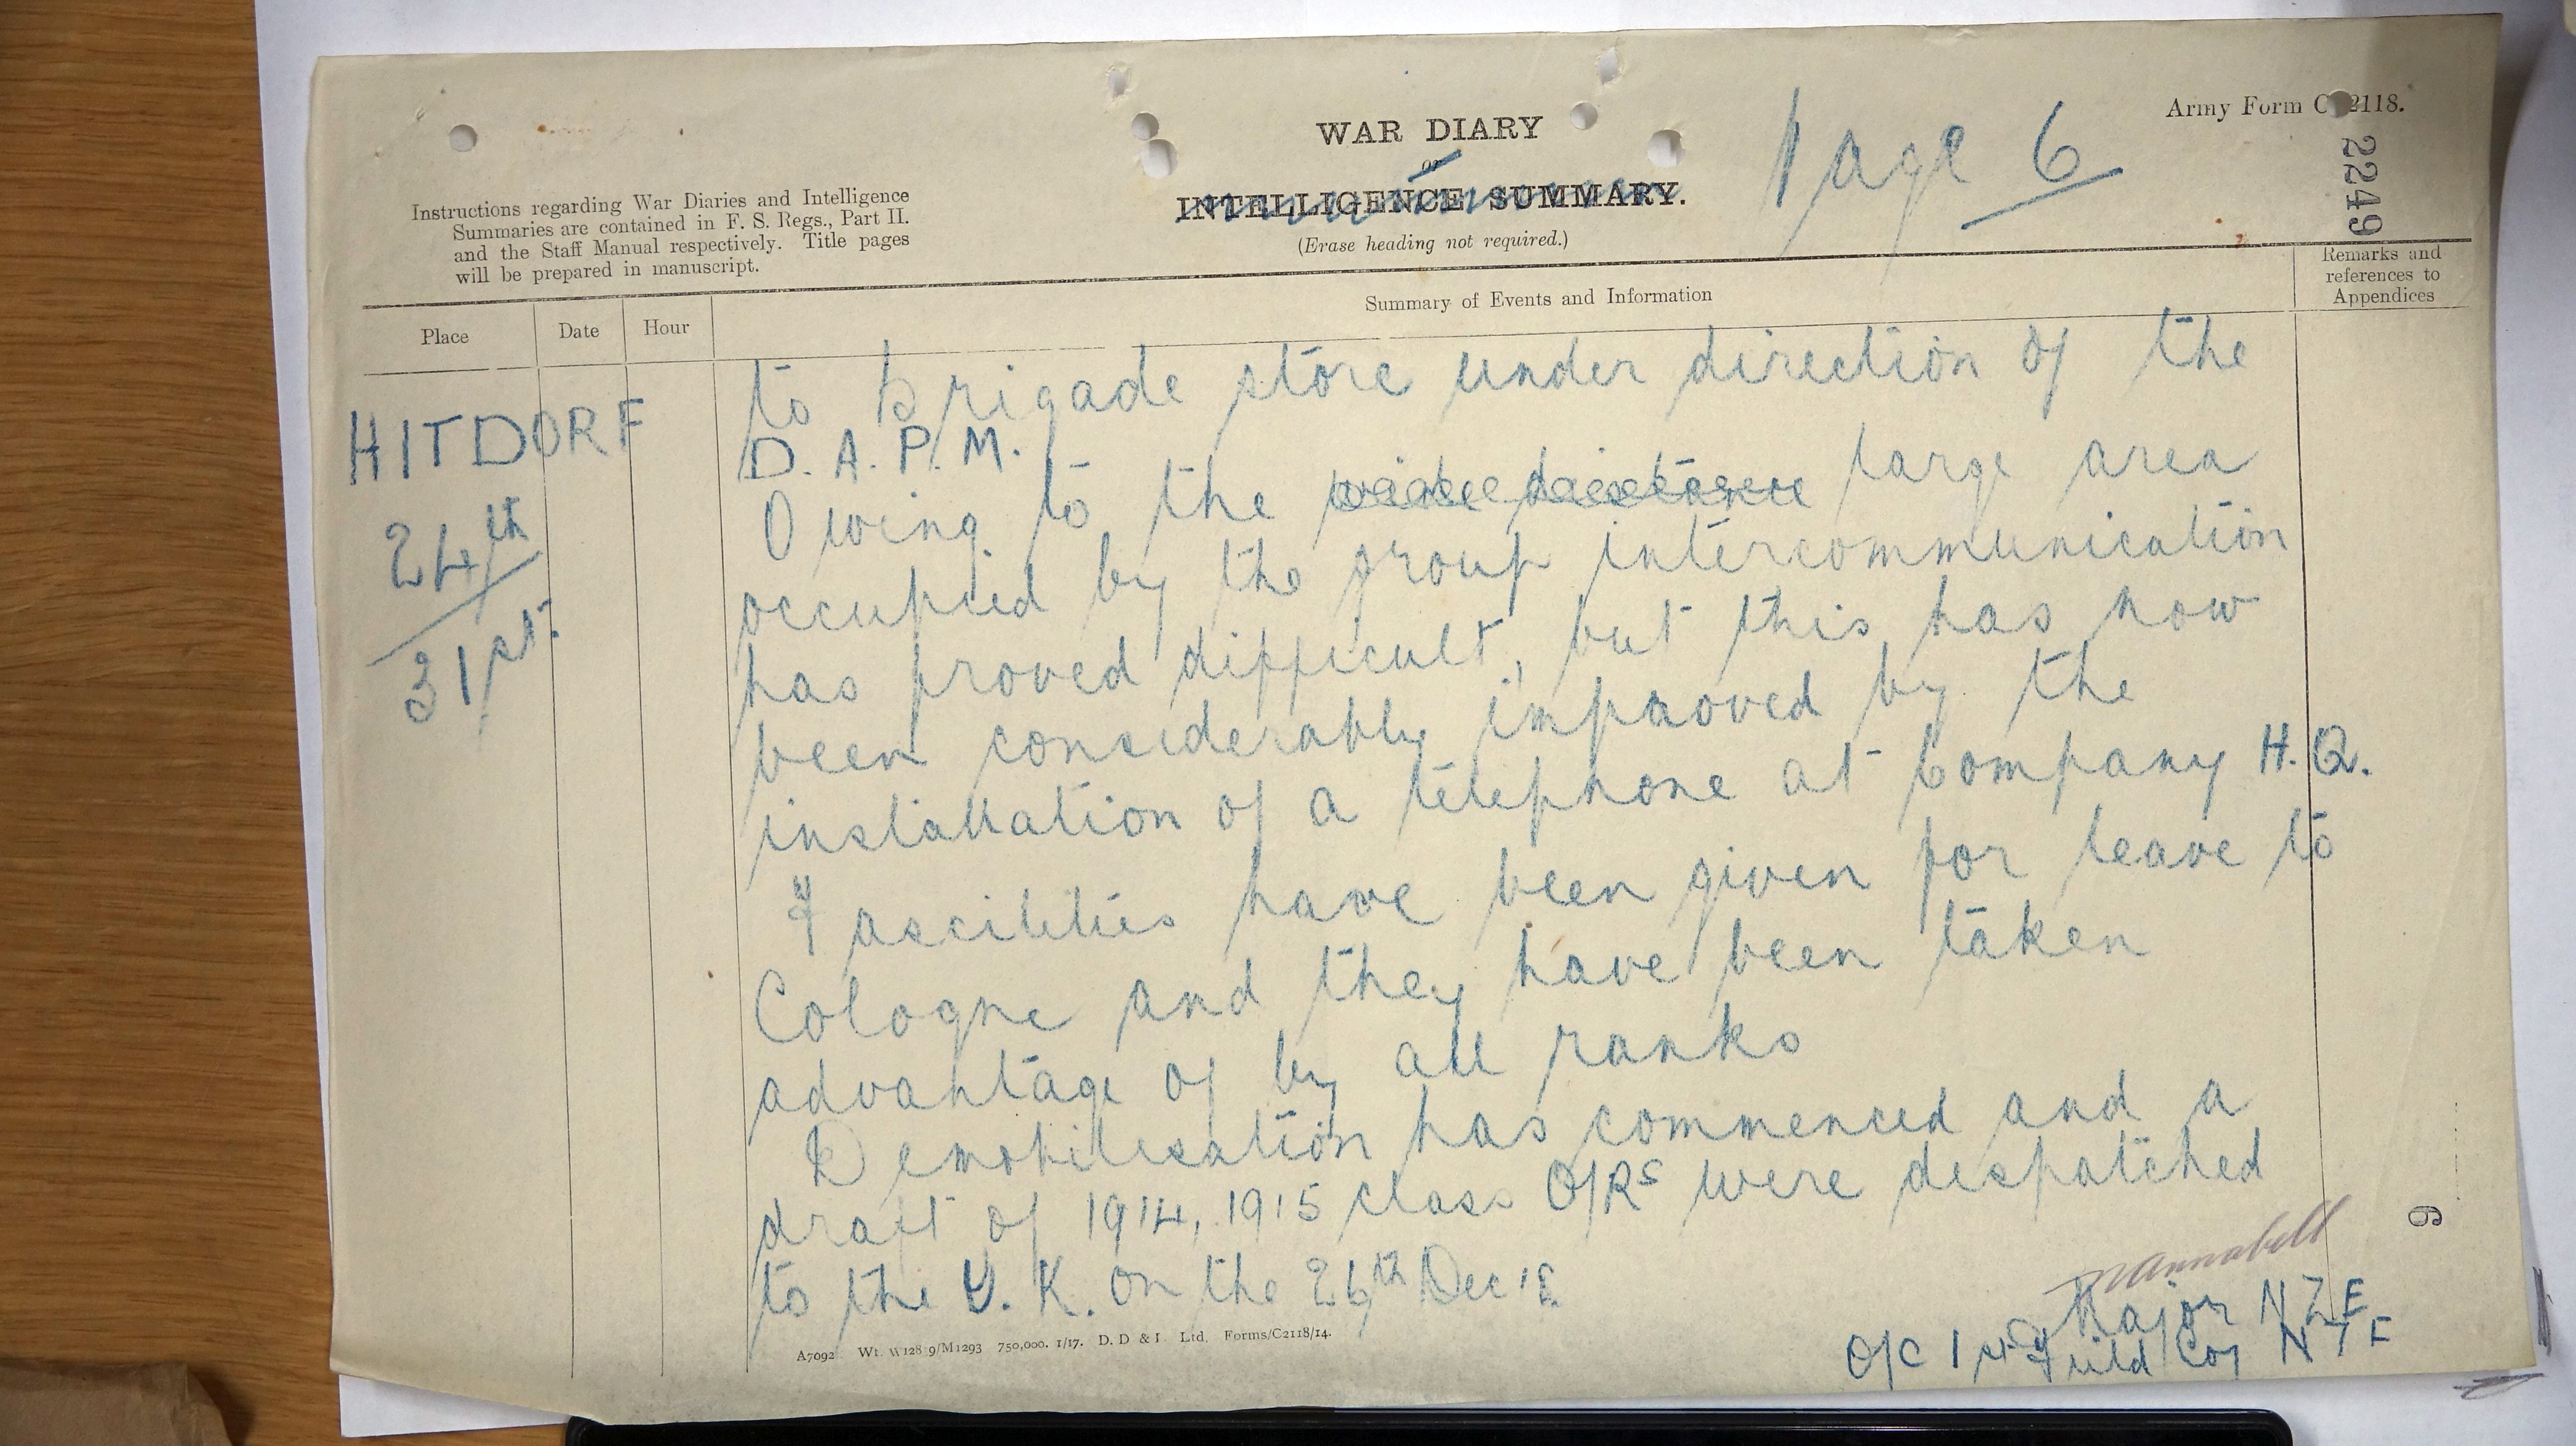 Army Form C. 2118.
WAR DIARY
or
INTELLIGENCE SUMMARY.
(Erase heading not required.)
Page 6
2249
Instructions regarding War Diaries and Intelligence
Summaries are contained in F. S. Regs., Part II.
and the Staff Manual respectively. Title pages
will be prepared in manuscript.
Place
Date
Hour
Summary of Events and Information
Remarks and
references to
Appendices
HITDORF
24th
31st.
to brigade store under direction of the
D. A. P. M.
Owing to the wide distance large area
occupied by the group intercommunication
has proved difficult, but this has now
been considerably improved by the
installation of a telephone at Company H.Q.
Fascilities have been given for leave to
Cologne and they have been taken
advantage of by all ranks
Demobilisation has commenced and a
draft of 1914, 1915 class O/Rs were despatched
to the U. K. on the 26th Dec '18
Annabell
Major NZE
O/C 1st Field Coy NZE
6
A7092 Wt. W128 9/M1293 750,000. 1/17. D. D & I Ltd. Forms/C2118/14.